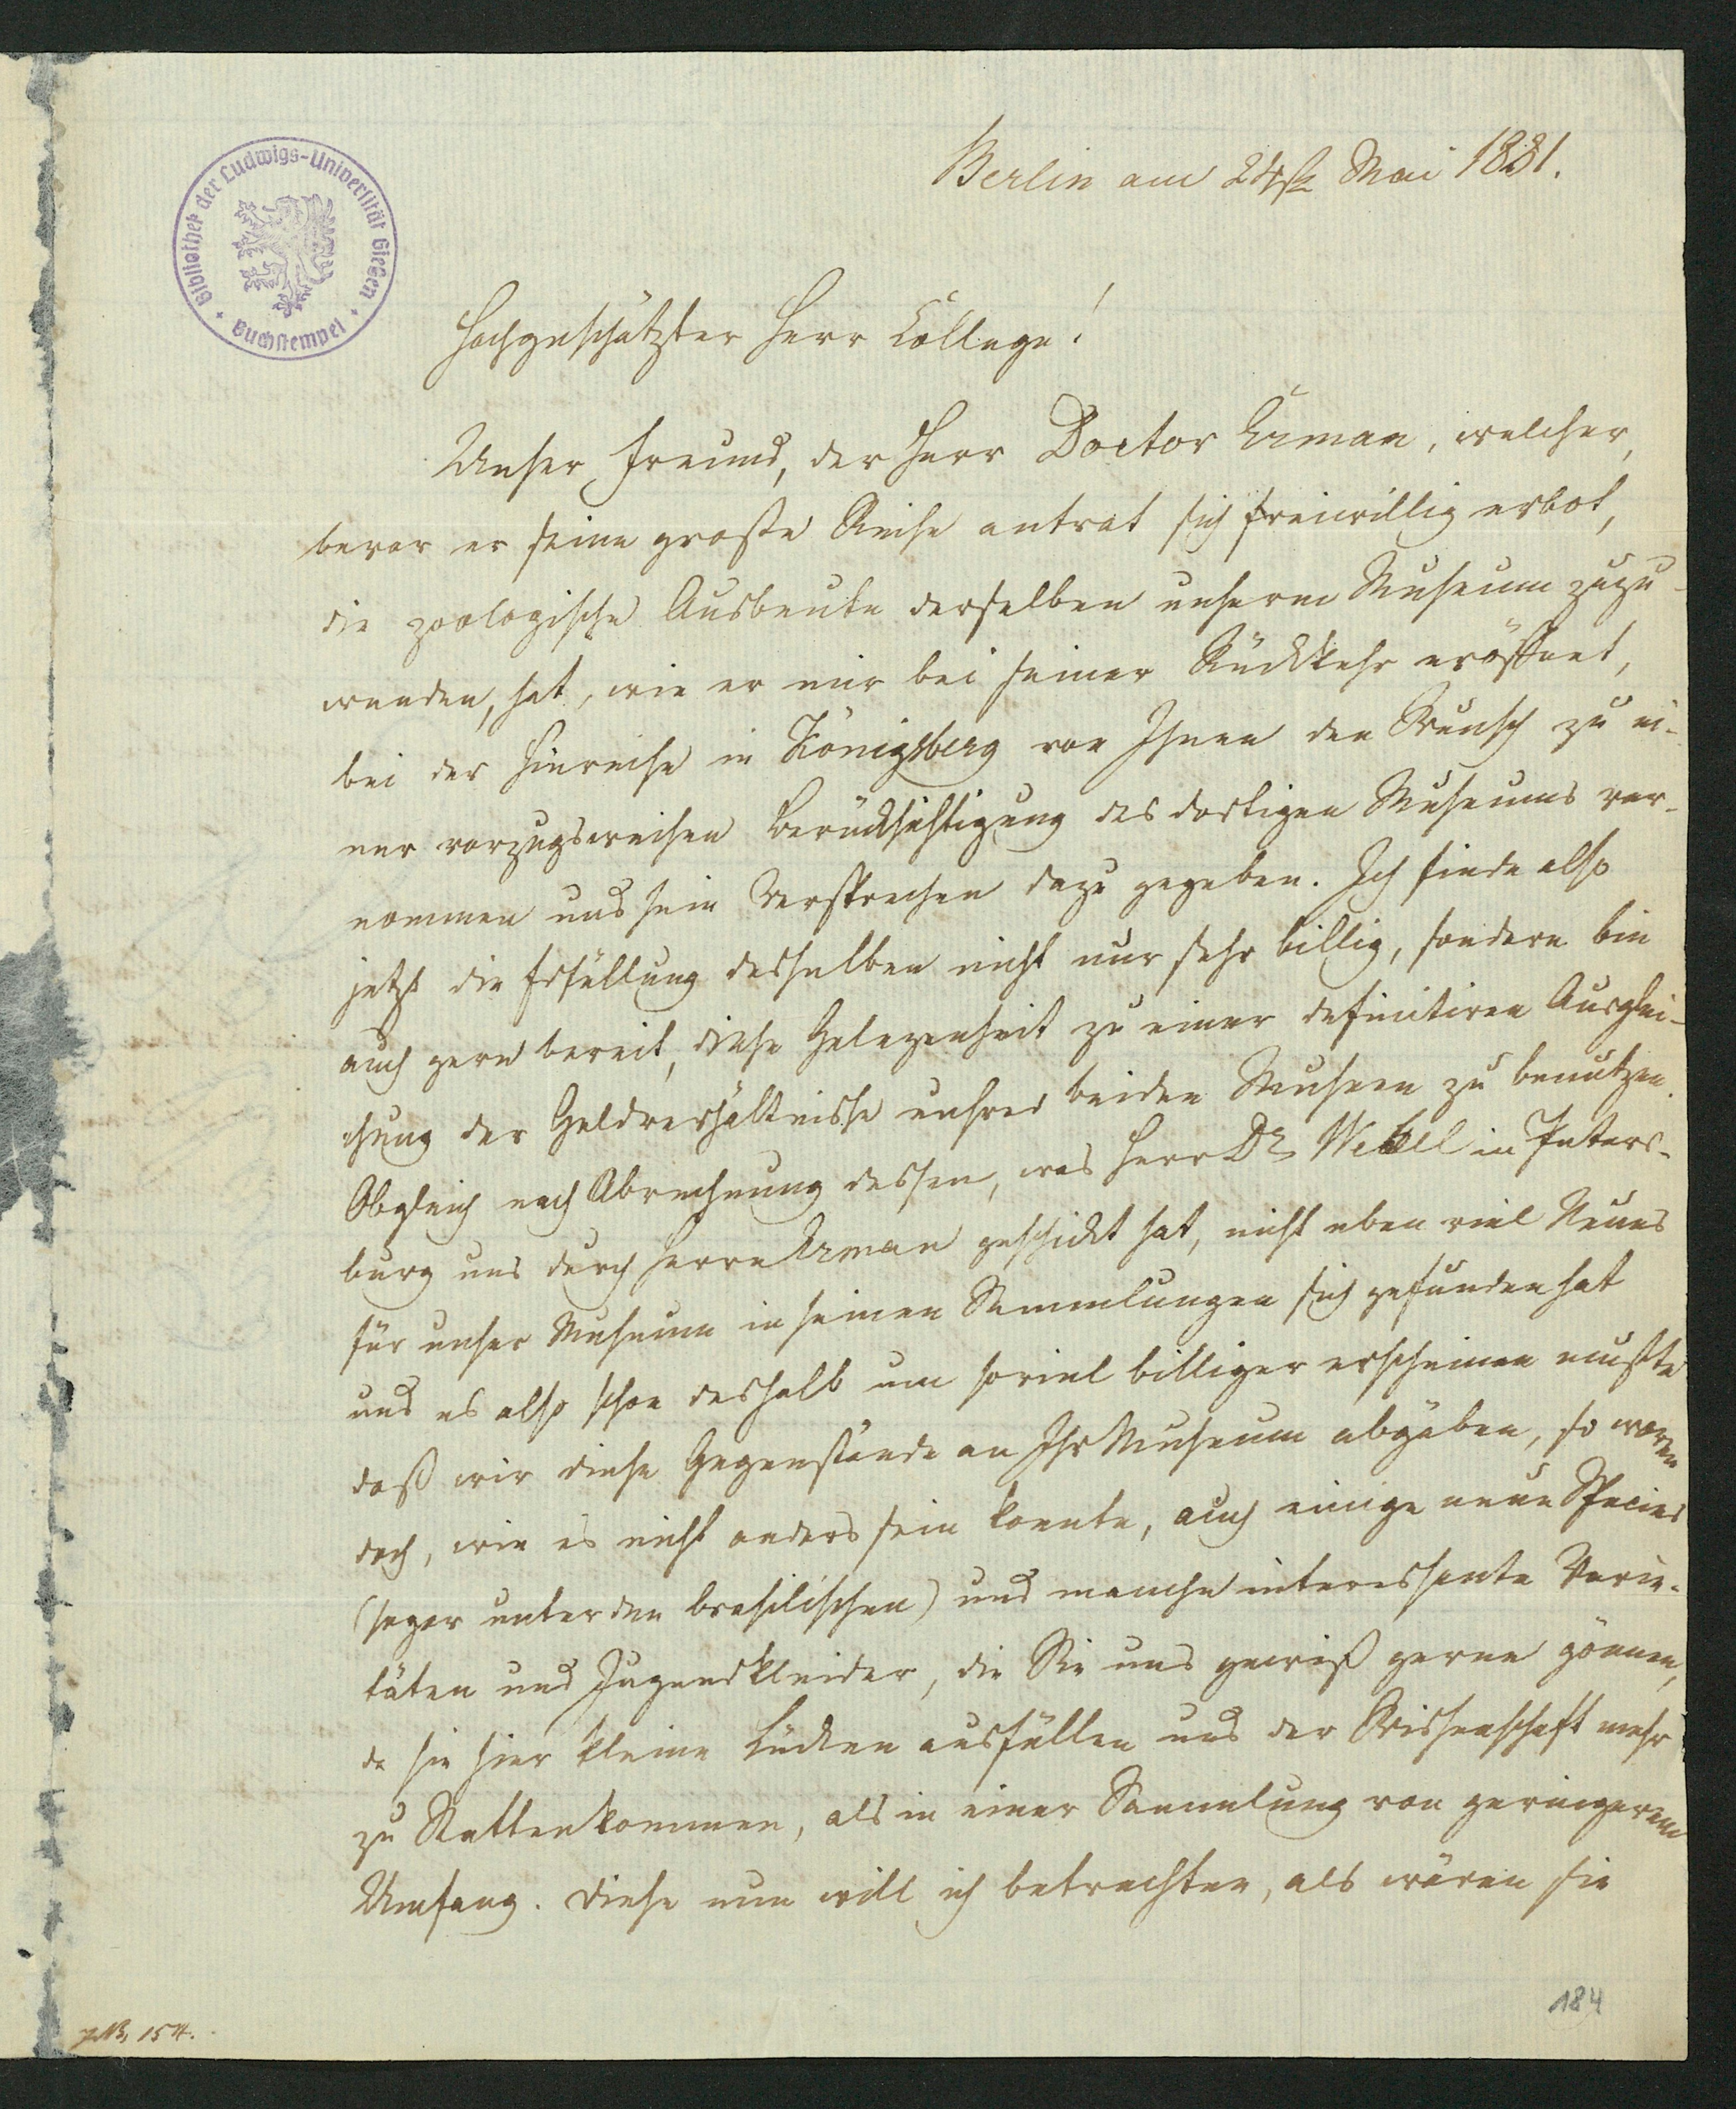 Berlin am 24ste Mai 1831.
Bibliothek der Ludwigs-Universität Gießen
Buchstempel
Hochgeschätzter Herr College!
Unser Freund, der Herr Doctor Erman, welcher,
bevor er seine große Reise antrat sich freiwillig erbot,
die zoologische Ausbeute derselben unserm Museum zuzu-
wenden, hat, wie er mir bei seiner Rückkehr eröffnet,
bei der Hinreise in Königsberg von Ihnen den Wunsch zu ei-
ner vorzugsweisen Berücksichtigung des dortigen Museums ver-
nommen und sein Versprechen dazu gegeben. Ich finde also
jetzt die Erfüllung desselben nicht nur sehr billig, sondern bin
auch gern bereit, diese Gelegenheit zu einer definitiven Ausglei-
chung der Geldverhältnisse unsrer beiden Museen zu benutzen.
Obgleich nach Abrechnung dessen, was Herr Dr in Peters-
burg uns durch Herrn Erman geschickt hat, nicht eben viel Neues
für unser Museum in seinen Sammlungen sich gefunden hat
und es also schon deshalb um soviel billiger erscheinen mußte
daß wir diese Gegenstände an Ihr Museum abgäben, so waren
doch, wie es nicht anders sein konnte, auch einige neue Species
(sogar unter den brasilischen) und manche interessante Varie-
täten und Jugendkleider, die Sie uns gewiß gerne gönnen,
da sie hier kleine Lücken ausfüllen und der Wissenschaft mehr
zu Statten kommen, als in einer Sammlung von geringerem
Umfang. Diese nun will ich betrachten, als wären sie
184
154.